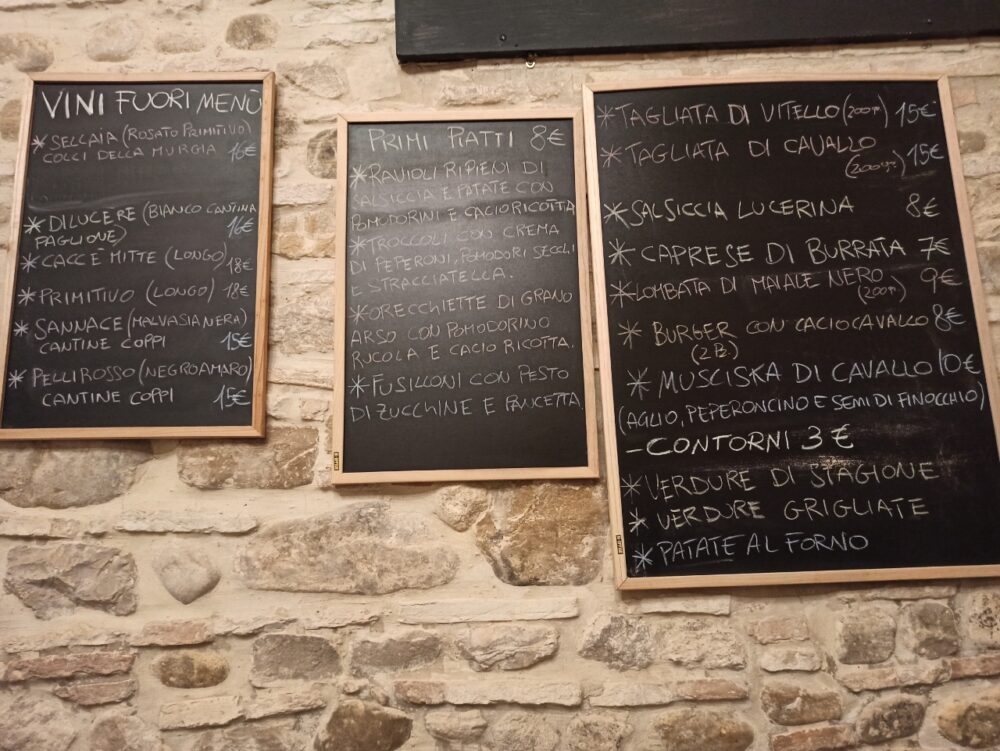 VINI FUORI MENÙ
* SELLAIA (ROSATO PRIMITIVO)
COLLI DELLA MURGIA 16€
* DILUCERE (BIANCO CANTINA
PAGLIONE) 16€
* CACC'E MITTE (LONGO) 18€
* PRIMITIVO (LONGO) 18€
* SANNACE (MALVASIA NERA)
CANTINE COPPI 15€
* PELLIROSSO (NEGROAMARO)
CANTINE COPPI 15€
PRIMI PIATTI 8€
* RAVIOLI RIPIENI DI
SALSICCIA E PATATE CON
POMODORINI E CACIORICOTTA
* TROCCOLI CON CREMA
DI PEPERONI, POMODORI SECCHI
E STRACCIATELLA.
* ORECCHIETTE DI GRANO
ARSO CON POMODORINO
RUCOLA E CACIO RICOTTA.
* FUSILLONI CON PESTO
DI ZUCCHINE E PANCETTA
* TAGLIATA DI VITELLO (200gr) 15€
* TAGLIATA DI CAVALLO
(200gr) 15€
* SALSICCIA LUCERINA 8€
* CAPRESE DI BURRATA 7€
* LOMBATA DI MAIALE NERO
(200gr) 9€
* BURGER CON CACIOCAVALLO 8€
(2 Pz.)
* MUSCISKA DI CAVALLO 10€
(AGLIO, PEPERONCINO E SEMI DI FINOCCHIO)
- CONTORNI 3€
* VERDURE DI STAGIONE
* VERDURE GRIGLIATE
* PATATE AL FORNO